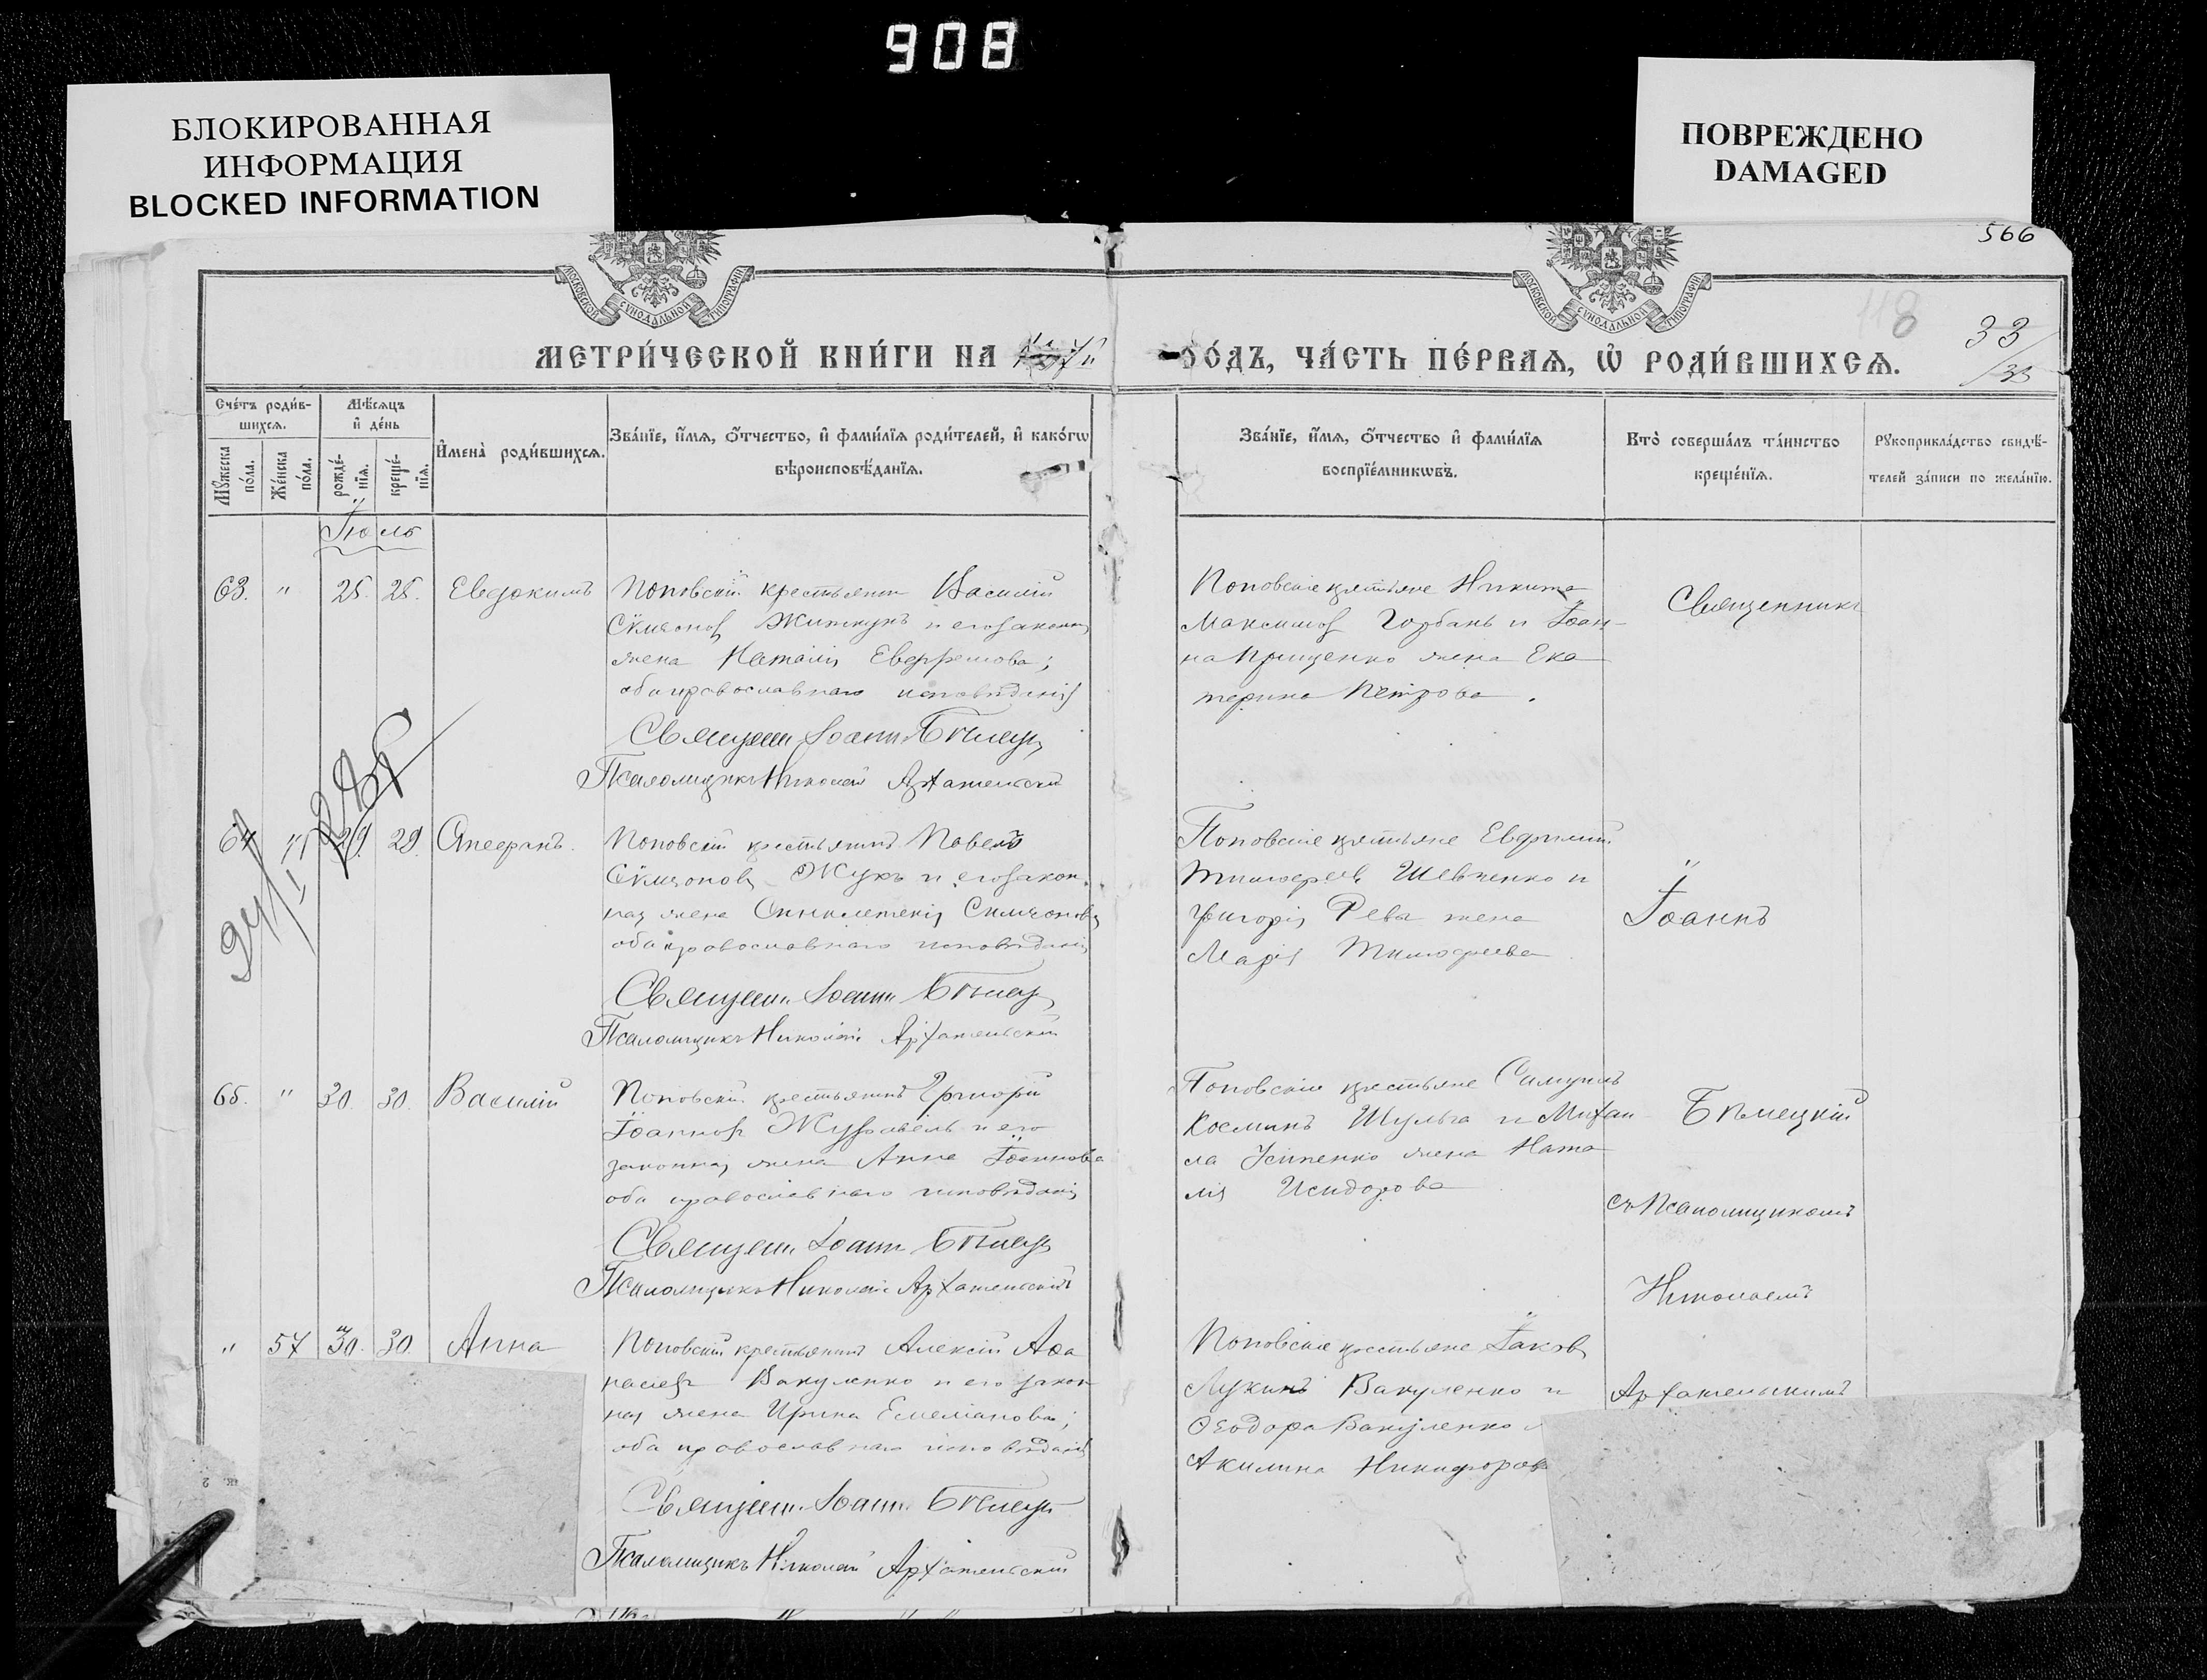 908
БЛОКИРОВАННАЯ
ИНФОРМАЦИЯ
BLOCKED INFORMATION
ПОВРЕЖДЕНО
DAMAGED
566
МОСКОВСКОЙ СУНОДАЛЬНОЙ ТИПОГРАФІИ
МОСКОВСКОЙ СУНОДАЛЬНОЙ ТИПОГРАФІИ
118
33
МЕТРИ́ЧЕСКОЙ КНИ́ГИ НА
ГО́ДЪ, ЧА́СТЬ ПЕ́РВАѦ, Ѡ҆ РОДИ́ВШИХСѦ.
Сче́тъ роди́в-
шихсѧ.
Мѣ́сѧцъ
и҆ де́нь
И҆мена̀ роди́вшихсѧ.
Зва́нїе, и҆́мѧ, ѻ҆́тчество, и҆ фами́лїѧ роди́телей, и҆ како́гѡ
вѣроисповѣ́данїѧ.
Мꙋ́жеска
по́ла.
Же́нска
по́ла.
рожде́-
нїѧ.
креще́-
нїѧ.
Зва́нїе, и҆́мѧ, ѻ҆́тчество и҆ фами́лїѧ
воспрїе́мникѡвъ.
Кто̀ соверша́лъ та́инство
креще́нїѧ.
Рꙋкоприкла́дство свидѣ́-
телей за́писи по жела́нїю.
Іюль
63. " 25. 25. Евдокимъ
Поповскій крестьянин Василій
Сѵмеонов и его законная
жена Наталія;
оба православнаго исповѣданія
Священ. Іоанн Бѣлецк
Псаломщикъ Николай Архангельскій
Поповскіе крестьяне Никита
Максимов Горбань и Іоан-
на Прищенко жена Ека
терина Петрова.
Священникъ
64 " 29. 29. Стефанъ.
Поповскій крестьянинъ Павелъ
Сѵмеоновъ Жукъ и его закон
ная жена Синклетикія Симеонова
оба православнаго исповѣданія
Священ. Іоанн Бѣлецк
Псаломщикъ Николай Архангельскій
Поповскіе крестьяне Евфимій
Тимофеев Шевченко и
Григорія Рева жена
Марія Тимофеева
Іоаннъ
65. " 30. 30. Василій
Поповскій крестьянинъ Григорій
Іоаннов Журавель и его
законная жена Анна Іоаннова
оба православнаго исповѣданія
Священ. Іоанн Бѣлецк
Псаломщикъ Николай Архангельскій
Поповскіе крестьяне Самуилъ
Косминъ Шульга и Михаи
ла Усипенко жена Ната
лія Исидорова
Бѣлецкій
съ Псаломщикомъ
Николаемъ
" 57 30. 30. Анна
Поповскій крестьянинъ Алексій Аѳа
насіев Вакуленко и его закон
ная жена Ирина Емеліанова;
оба православнаго исповѣданія
Священ. Іоанн Бѣлецк
Псаломщикъ Николай Архангельскій
Поповскіе крестьяне Іаков
Лукинъ Вакуленко и
Ѳеодора Вакуленко
Акилина Никифоров
Архангельскимъ